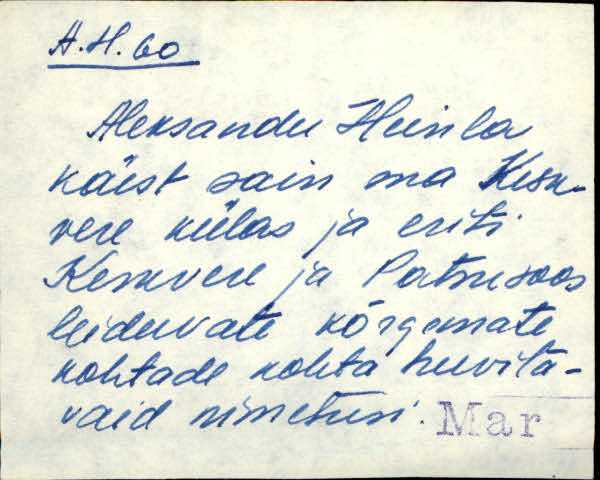 A.H. 60
Aleksander Heinla
käest sain ma Kesk-
vere külas ja eriti
Keskvere ja soos
leiduvate kõrgemate
kohtade kohta huvita-
vaid nimetusi. Mar